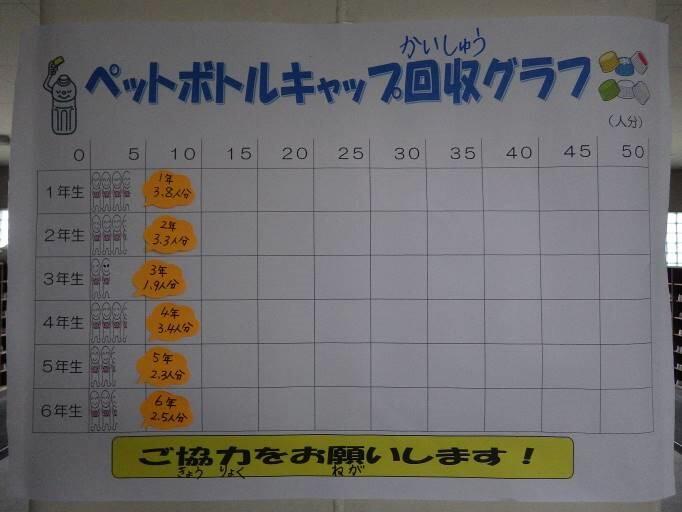 かいしゅう
ペットボトルキャップ回収グラフ
（人分）
0 5 10 15 20 25 30 35 40 45 50
1年生 1年 3.8人分
2年生 2年 3.3人分
3年生 3年 1.9人分
4年生 4年 3.4人分
5年生 5年 2.3人分
6年生 6年 2.5人分
ご協力をお願いします！
きょう りょく ねが